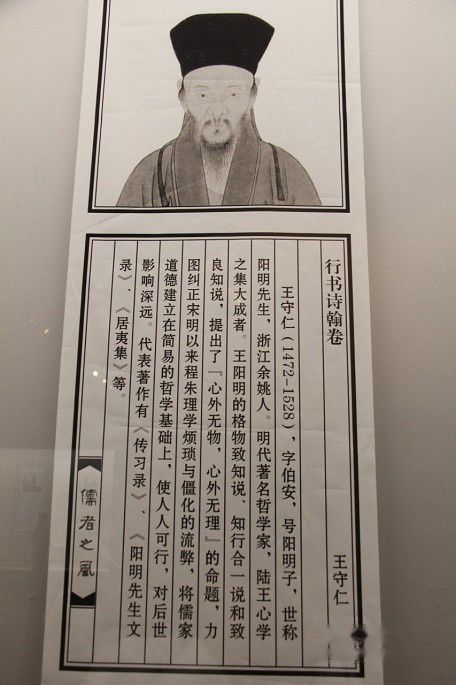 行书诗翰卷
王守仁
王守仁(1472-1528),字伯安,号阳明子,世称
阳明先生,浙江余姚人。明代著名哲学家,陆王心学
之集大成者。王阳明的格物致知说、知行合一说和致
良知说,提出了『心外无物,心外无理』的命题,力
图纠正宋明以来程朱理学烦琐与僵化的流弊,将儒家
道德建立在简易的哲学基础上,使人人可行,对后世
影响深远。代表著作有《传习录》、《阳明先生文
录》、《居夷集》等。
儒者之风